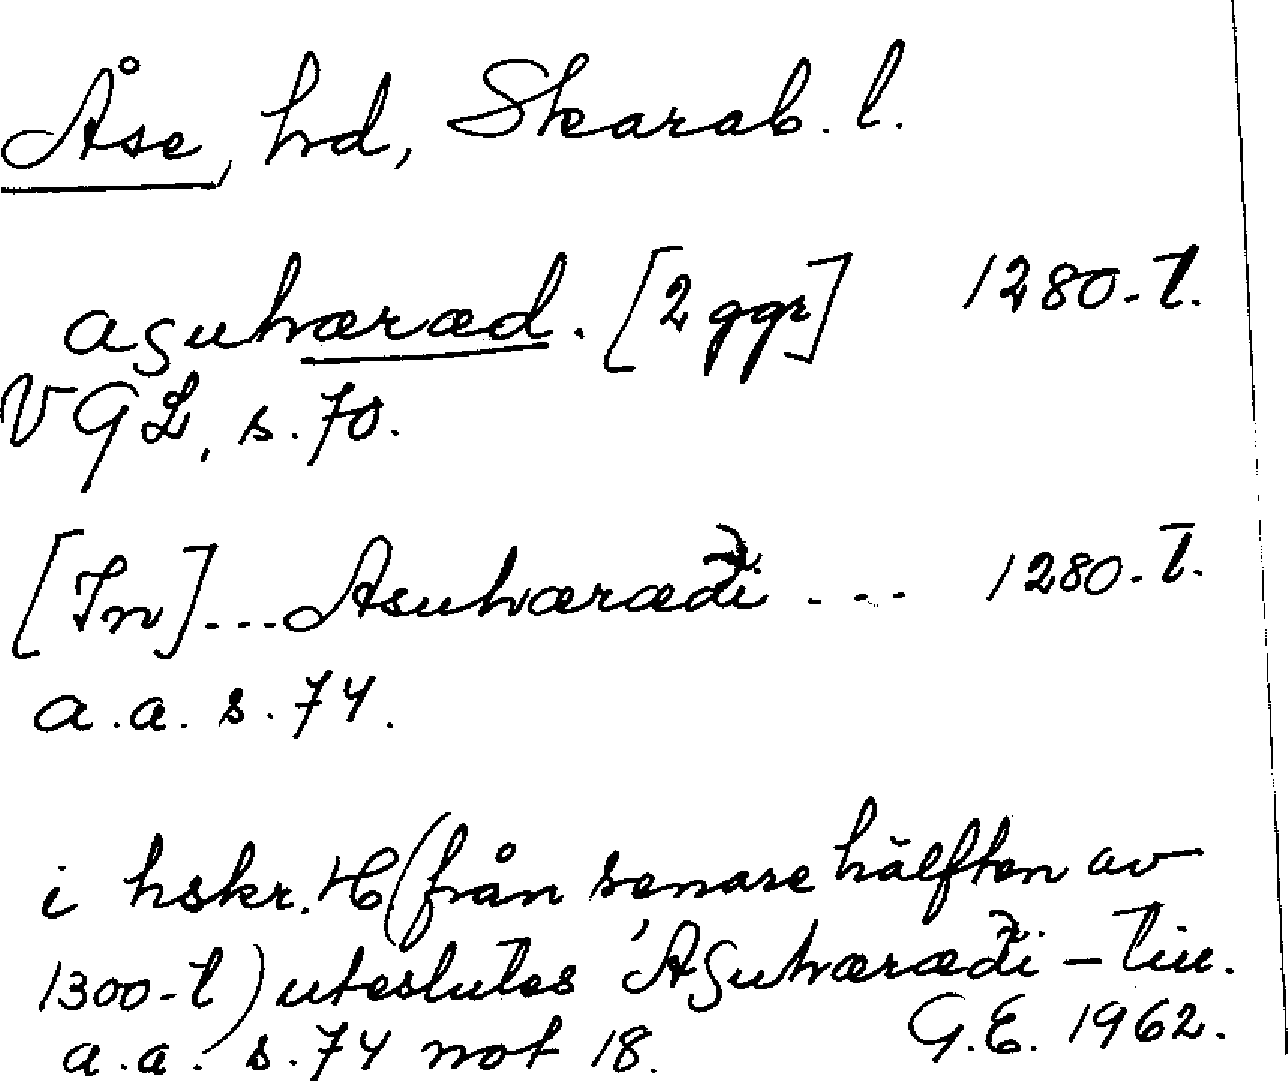 Åse, hd, Skarab. l.
aʒuhæræd. [2 ggr] 1280-t.
VGL, s. 70.
[In]... Asuhæræði ... 1280-t.
a.a. s. 74.
i hskr. H (från senare hälften av
1300-t) uteslutes 'Aʒuhæræði – tiu.
a.a. s. 74 not 18. G.E. 1962.